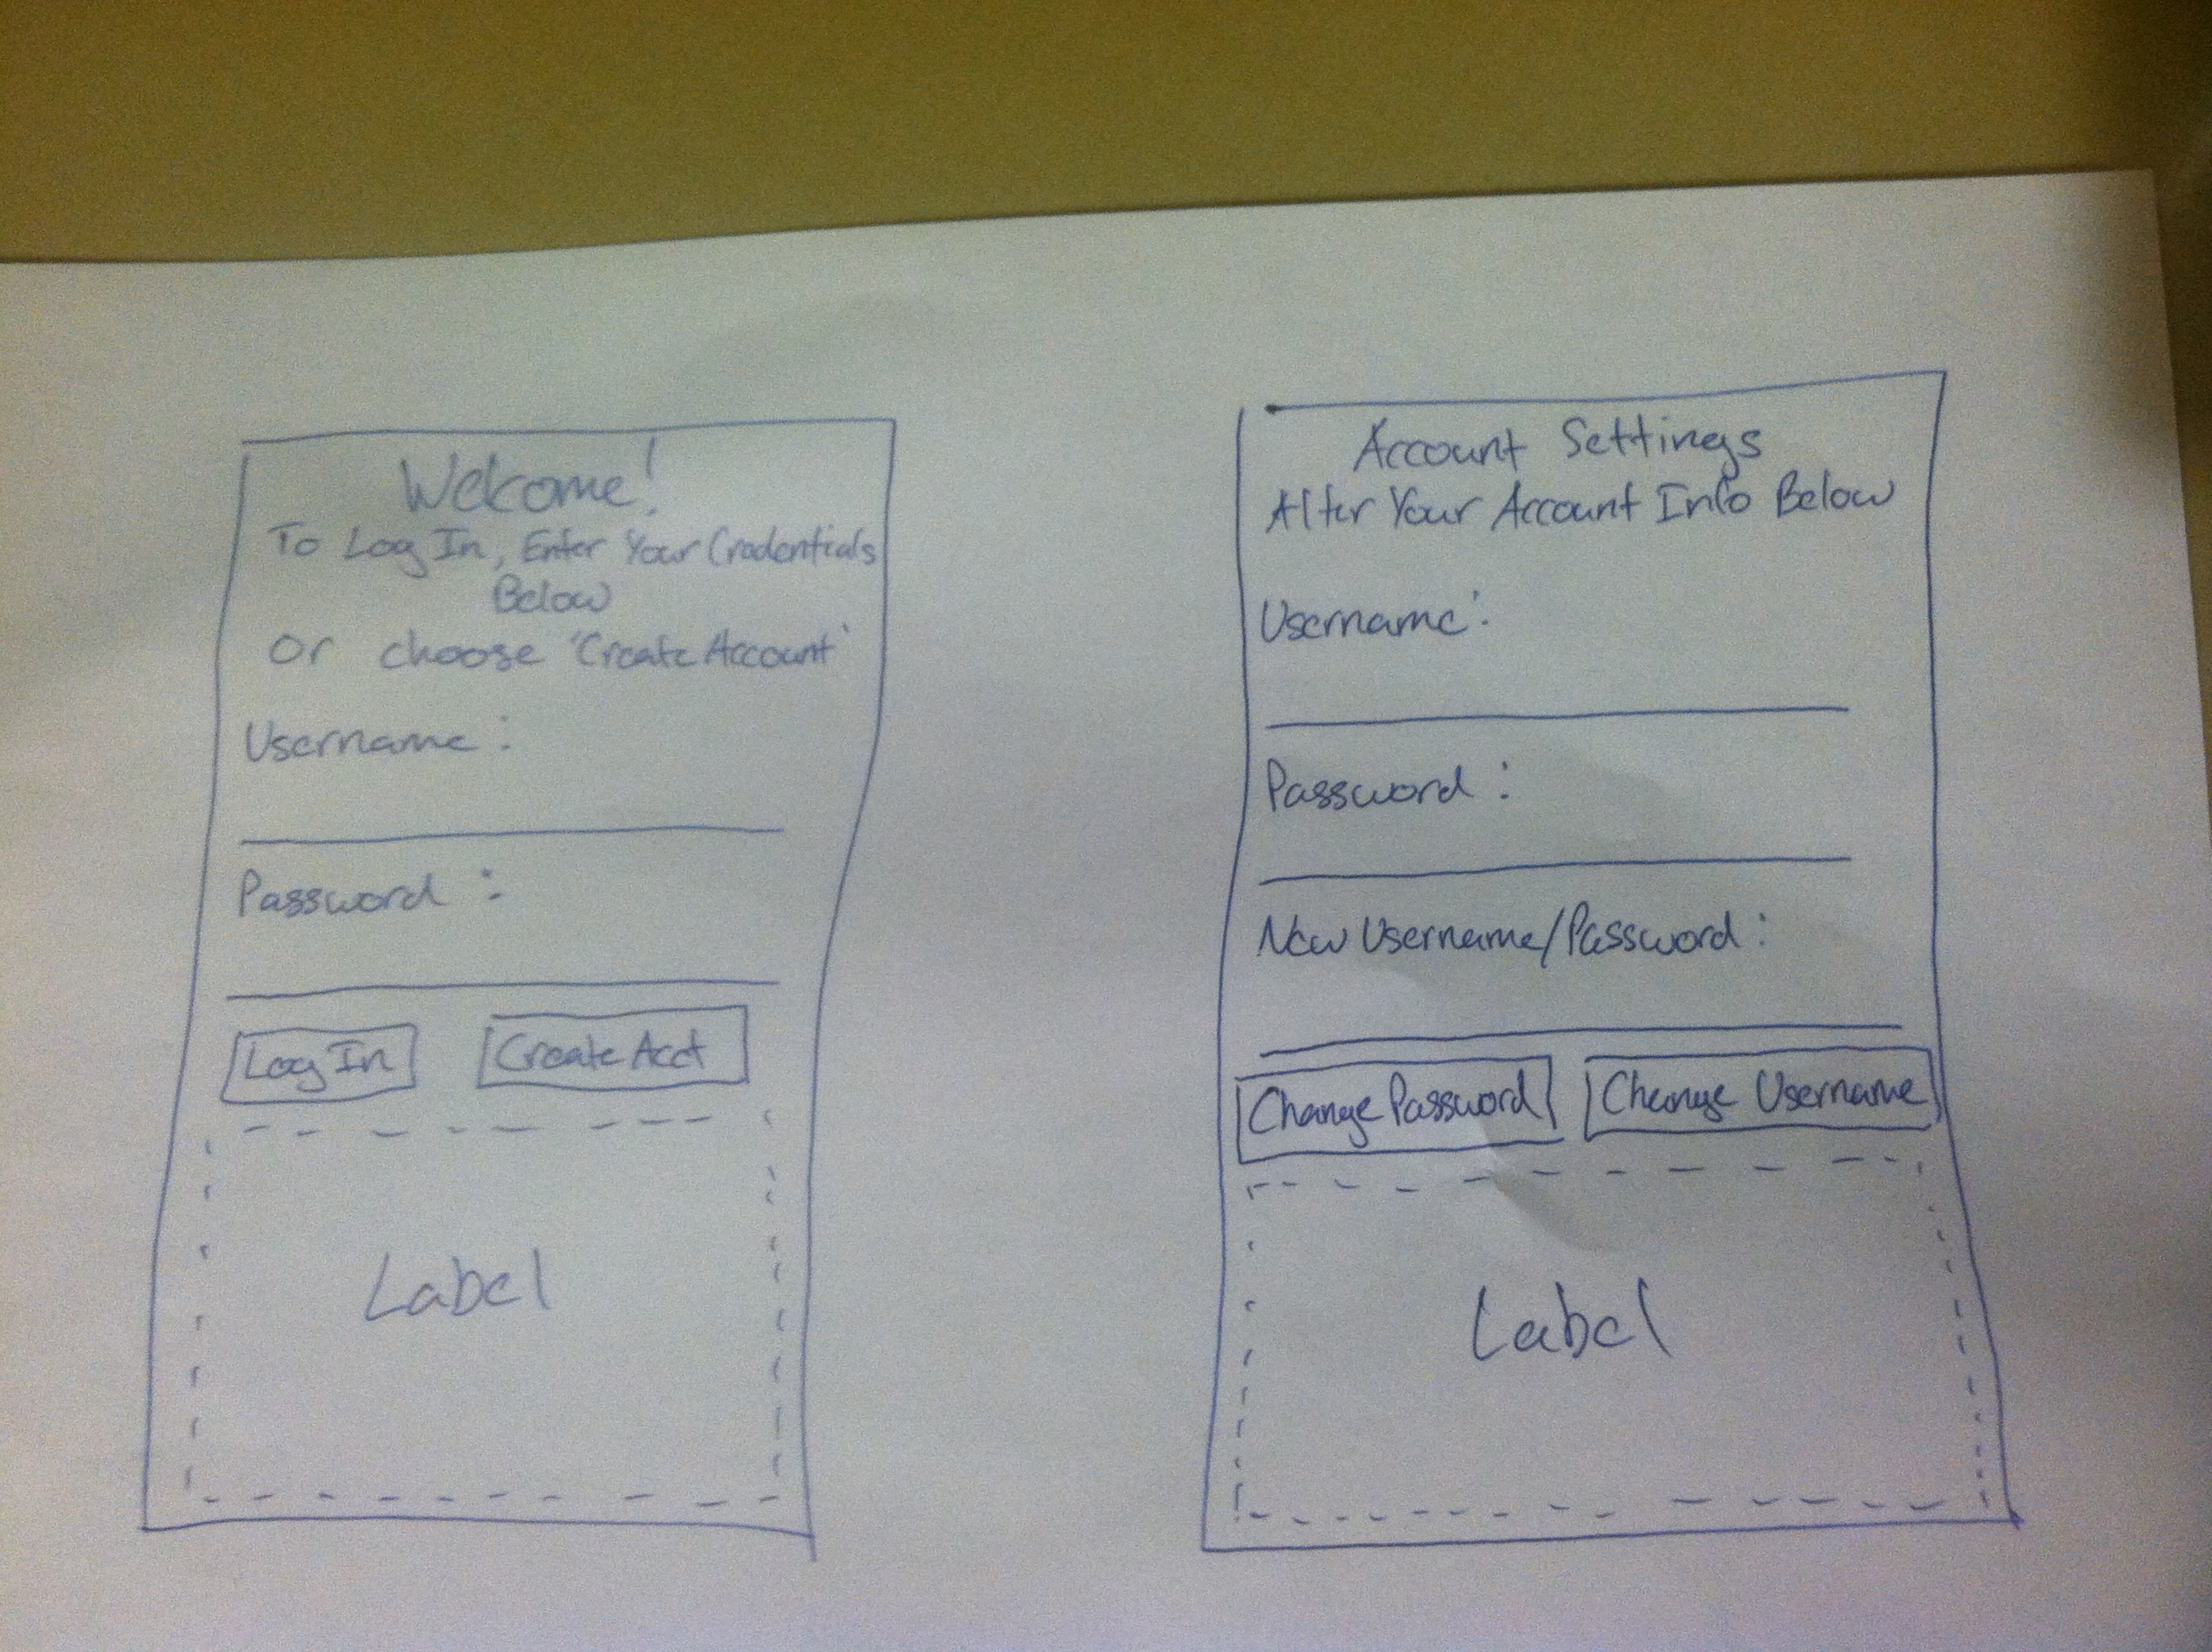 Welcome!
To Log In, Enter Your Credentials
Below
Or choose 'Create Account'
Username:
Password:
Log In
Create Acct
Label
Account Settings
Alter Your Account Info Below
Username:
Password:
New Username/Password:
Change Password
Change Username
Label